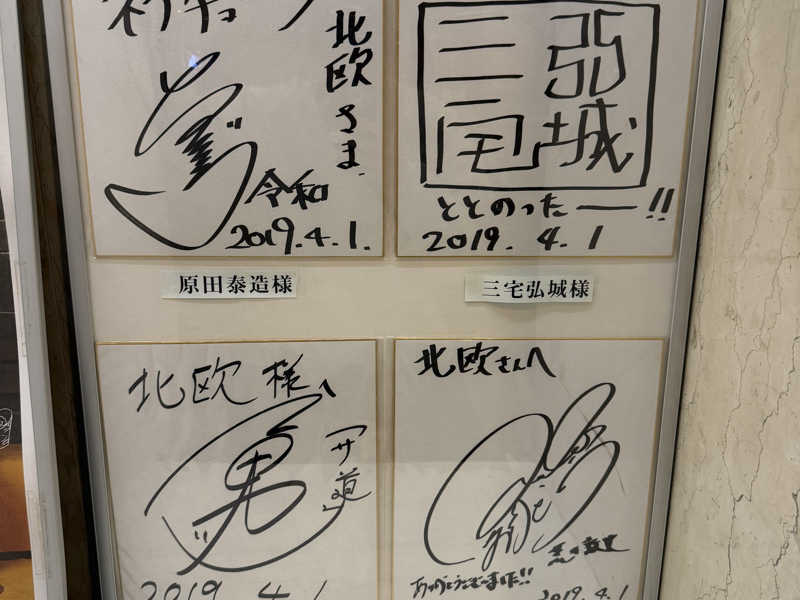 ネプチューン
北欧さま
令和
2019.4.1.
原田泰造様
三宅
弘城
ととのったー!!
2019.4.1
三宅弘城様
北欧様へ
「サ道」
2019.4.1
北欧さんへ
ありがとうございました!!
2019.4.1